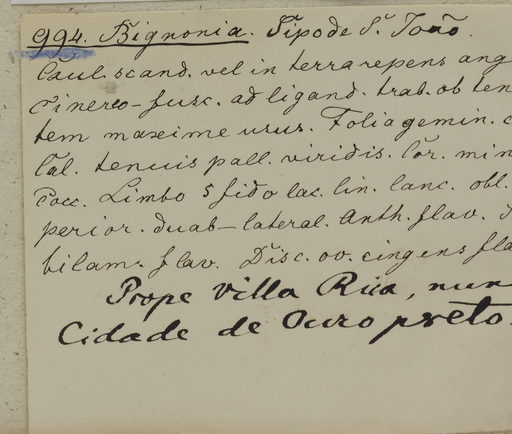 994. Bignonia. Sipo de S. João.
Caul. scand. vel in terra repens ang
cinereo-fusc. ad ligand. trab. ob ten
tem maxime usus. Folia gemin. c
Cal. tenuis pall. viridis. Cor. min
cocc. Limbo 5 fido lac. lin. lanc. obl.
perior. duab-lateral. Anth. flav. S
bilam. flav. Disc. ov. cingens fla
Prope Villa Rica, nun
Cidade de Ouro preto.